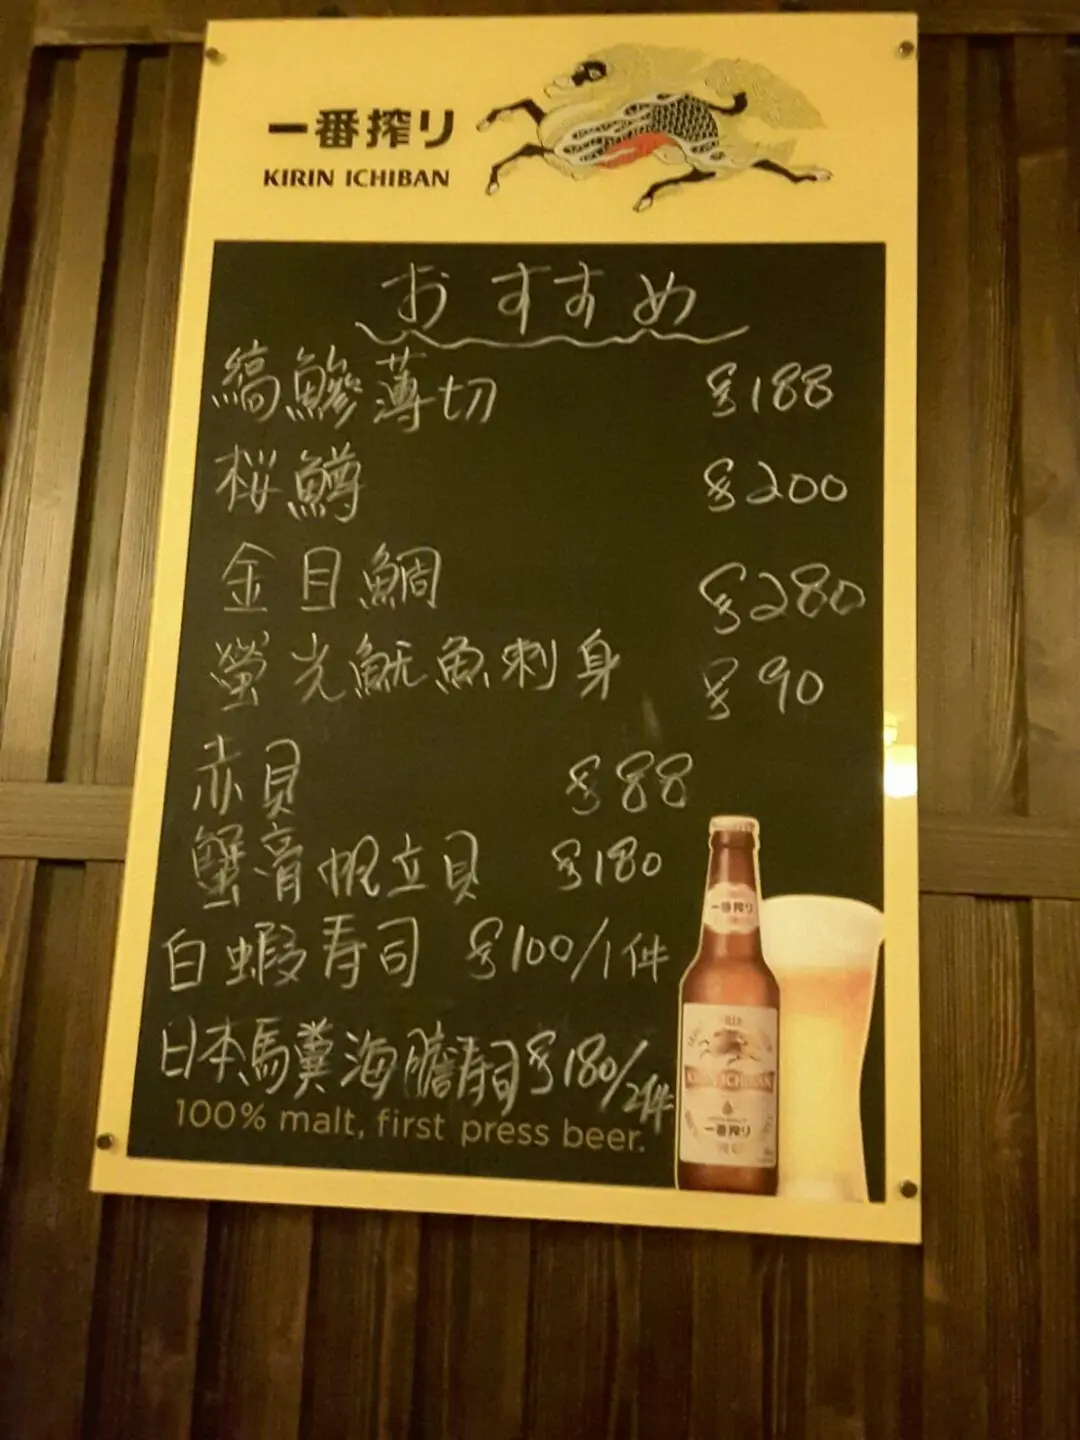 一番搾り
KIRIN ICHIBAN
おすすめ
縞鰺薄切 $188
桜鱒 $200
金目鯛 $280
螢光魷魚刺身 $90
赤貝 $88
蟹膏帆立貝 $180
白蝦寿司 $100/1件
日本馬糞海膽寿司 $180/2件
100% malt, first press beer.
一番搾り
KIRIN ICHIBAN
一番搾り